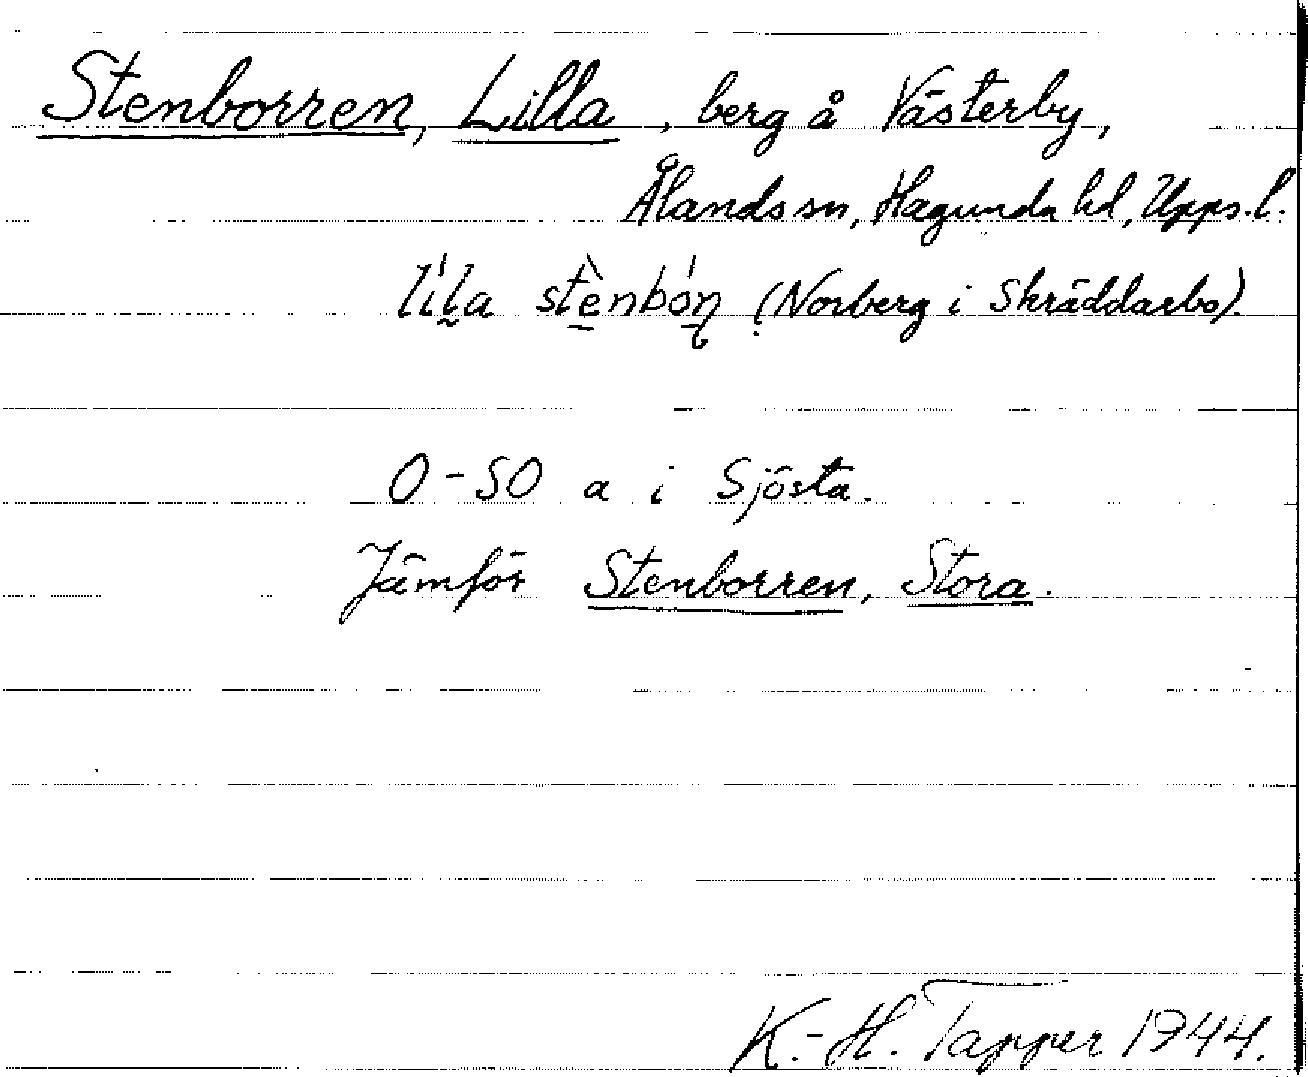 Stenborren, Lilla, berg å Västerby,
Ålands sn, Hagunda hd, Upps. l.
líl̰a stè̠nbó̠ɳ (Norberg i Skräddarbo).
O-SO a i Sjösta.
Jämför Stenborren, Stora.
K.-H. Tapper 1944.